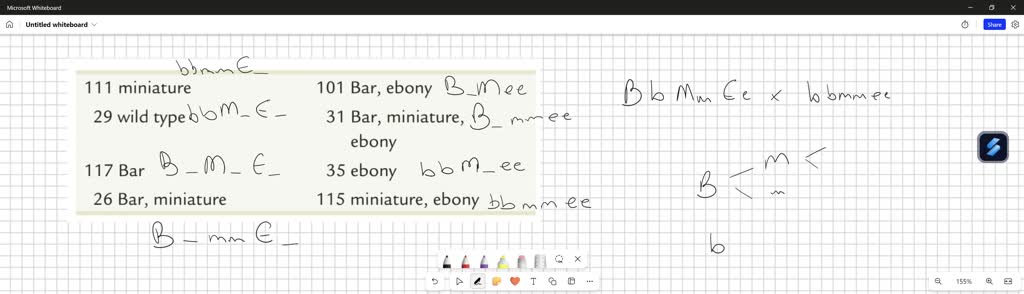 Microsoft Whiteboard
Untitled whiteboard
Share
bbmmE_
111 miniature
101 Bar, ebony B_Mee
29 wild type bbM_E_
31 Bar, miniature, B_mmee
ebony
117 Bar B_M_E_
35 ebony bbM_ee
26 Bar, miniature
115 miniature, ebony bbmmee
B_mmE_
BbMmEe x bbmmee
M
B
m
b
155%